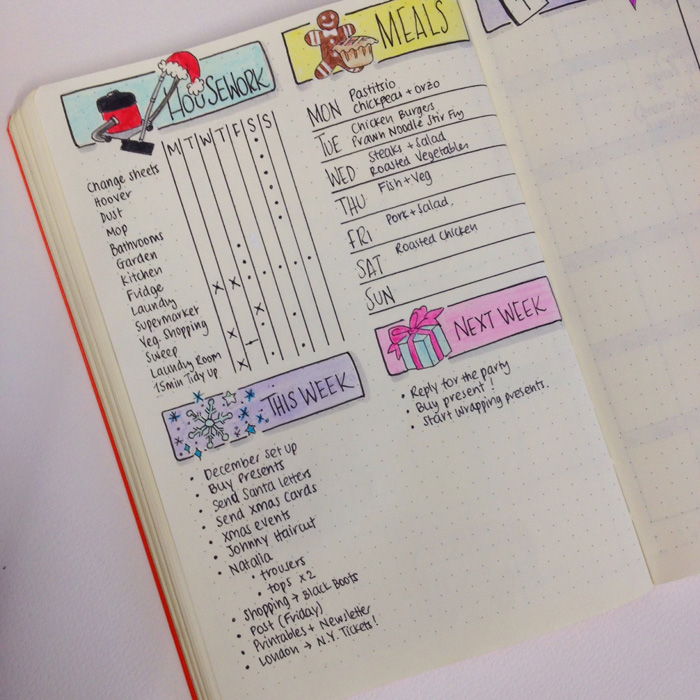 HOUSEWORK
M T W T F S S
Change sheets
Hoover
Dust
Mop
Bathrooms
Garden
Kitchen
Fridge
Laundry
Supermarket
Veg. Shopping
Sweep
Laundry Room
15min Tidy Up
MEALS
MON Pastitsio
chickpeas + orzo
TUE Chicken Burgers
Prawn Noodle Stir Fry
WED Steaks + Salad
Roasted Vegetables
THU Fish + Veg
FRI Pork + Salad.
SAT Roasted Chicken
SUN
NEXT WEEK
• Reply for the party
• Buy present!
• Start wrapping presents.
THIS WEEK
• December set up
• Buy Presents
• Send Santa letters
• Send Xmas Cards
• Xmas events
• Johnny Haircut
• Natalia
• trousers
• tops x2
• Shopping → Black Boots
• Post (Friday)
• Printables + Newsletter
• London → N.Y. Tickets!